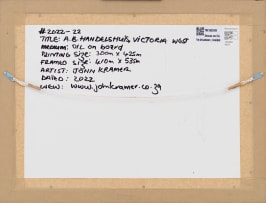 #2022-22
TITLE: A.B HANDELSHUIS, VICTORIA WEST
MEDIUM: OIL on board
PAINTING SIZE: 300m x 425m
FRAMED SIZE: 410m x 535m
ARTIST: JOHN KRAMER
DATED: 2022
VIEW: www.johnkramer.co.za